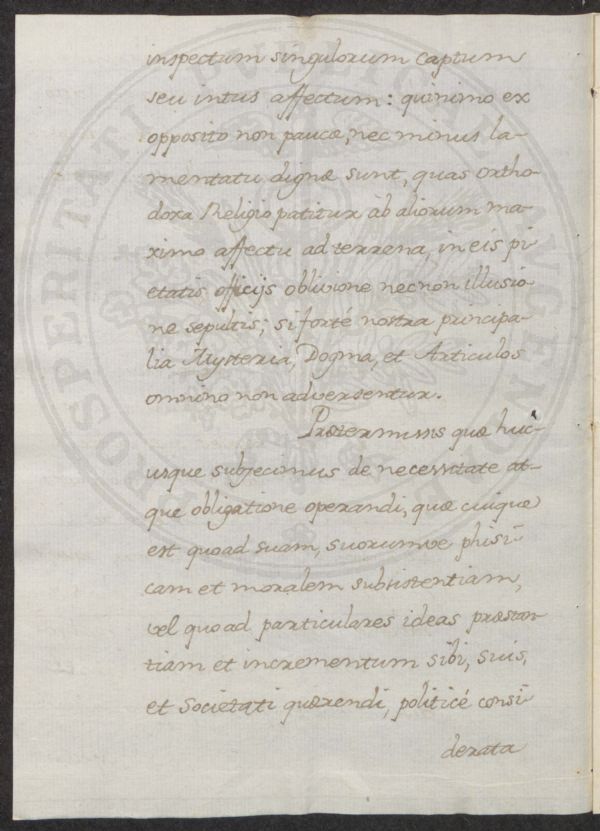 inspectum singulorum captum
seu intus affectum: quinimo ex
opposito non paucæ, nec minus la-
mentatu dignæ sunt, quas Ortho-
doxa Religio patitur ab aliorum ma-
ximo affectu ad terrena, in eis pi
etatis officijs oblivione necnon illusio-
ne sepultis; si forté nostra principa-
lia Mysteria, Dogma, et Articulos
omnino non adversentur.
Prætermissis quæ huc-
usque subjecimus de necessitate at-
que obligatione operandi, quæ cuique
est quoad suam, suorumve phisi-
cam et moralem subsistentiam,
vel quoad particulares ideas præstan
tiam et incrementum sibi, suis,
et Societati quærendi, politicé consi-
derata
PROSPERITATI PUBLICAE AUGENDAE